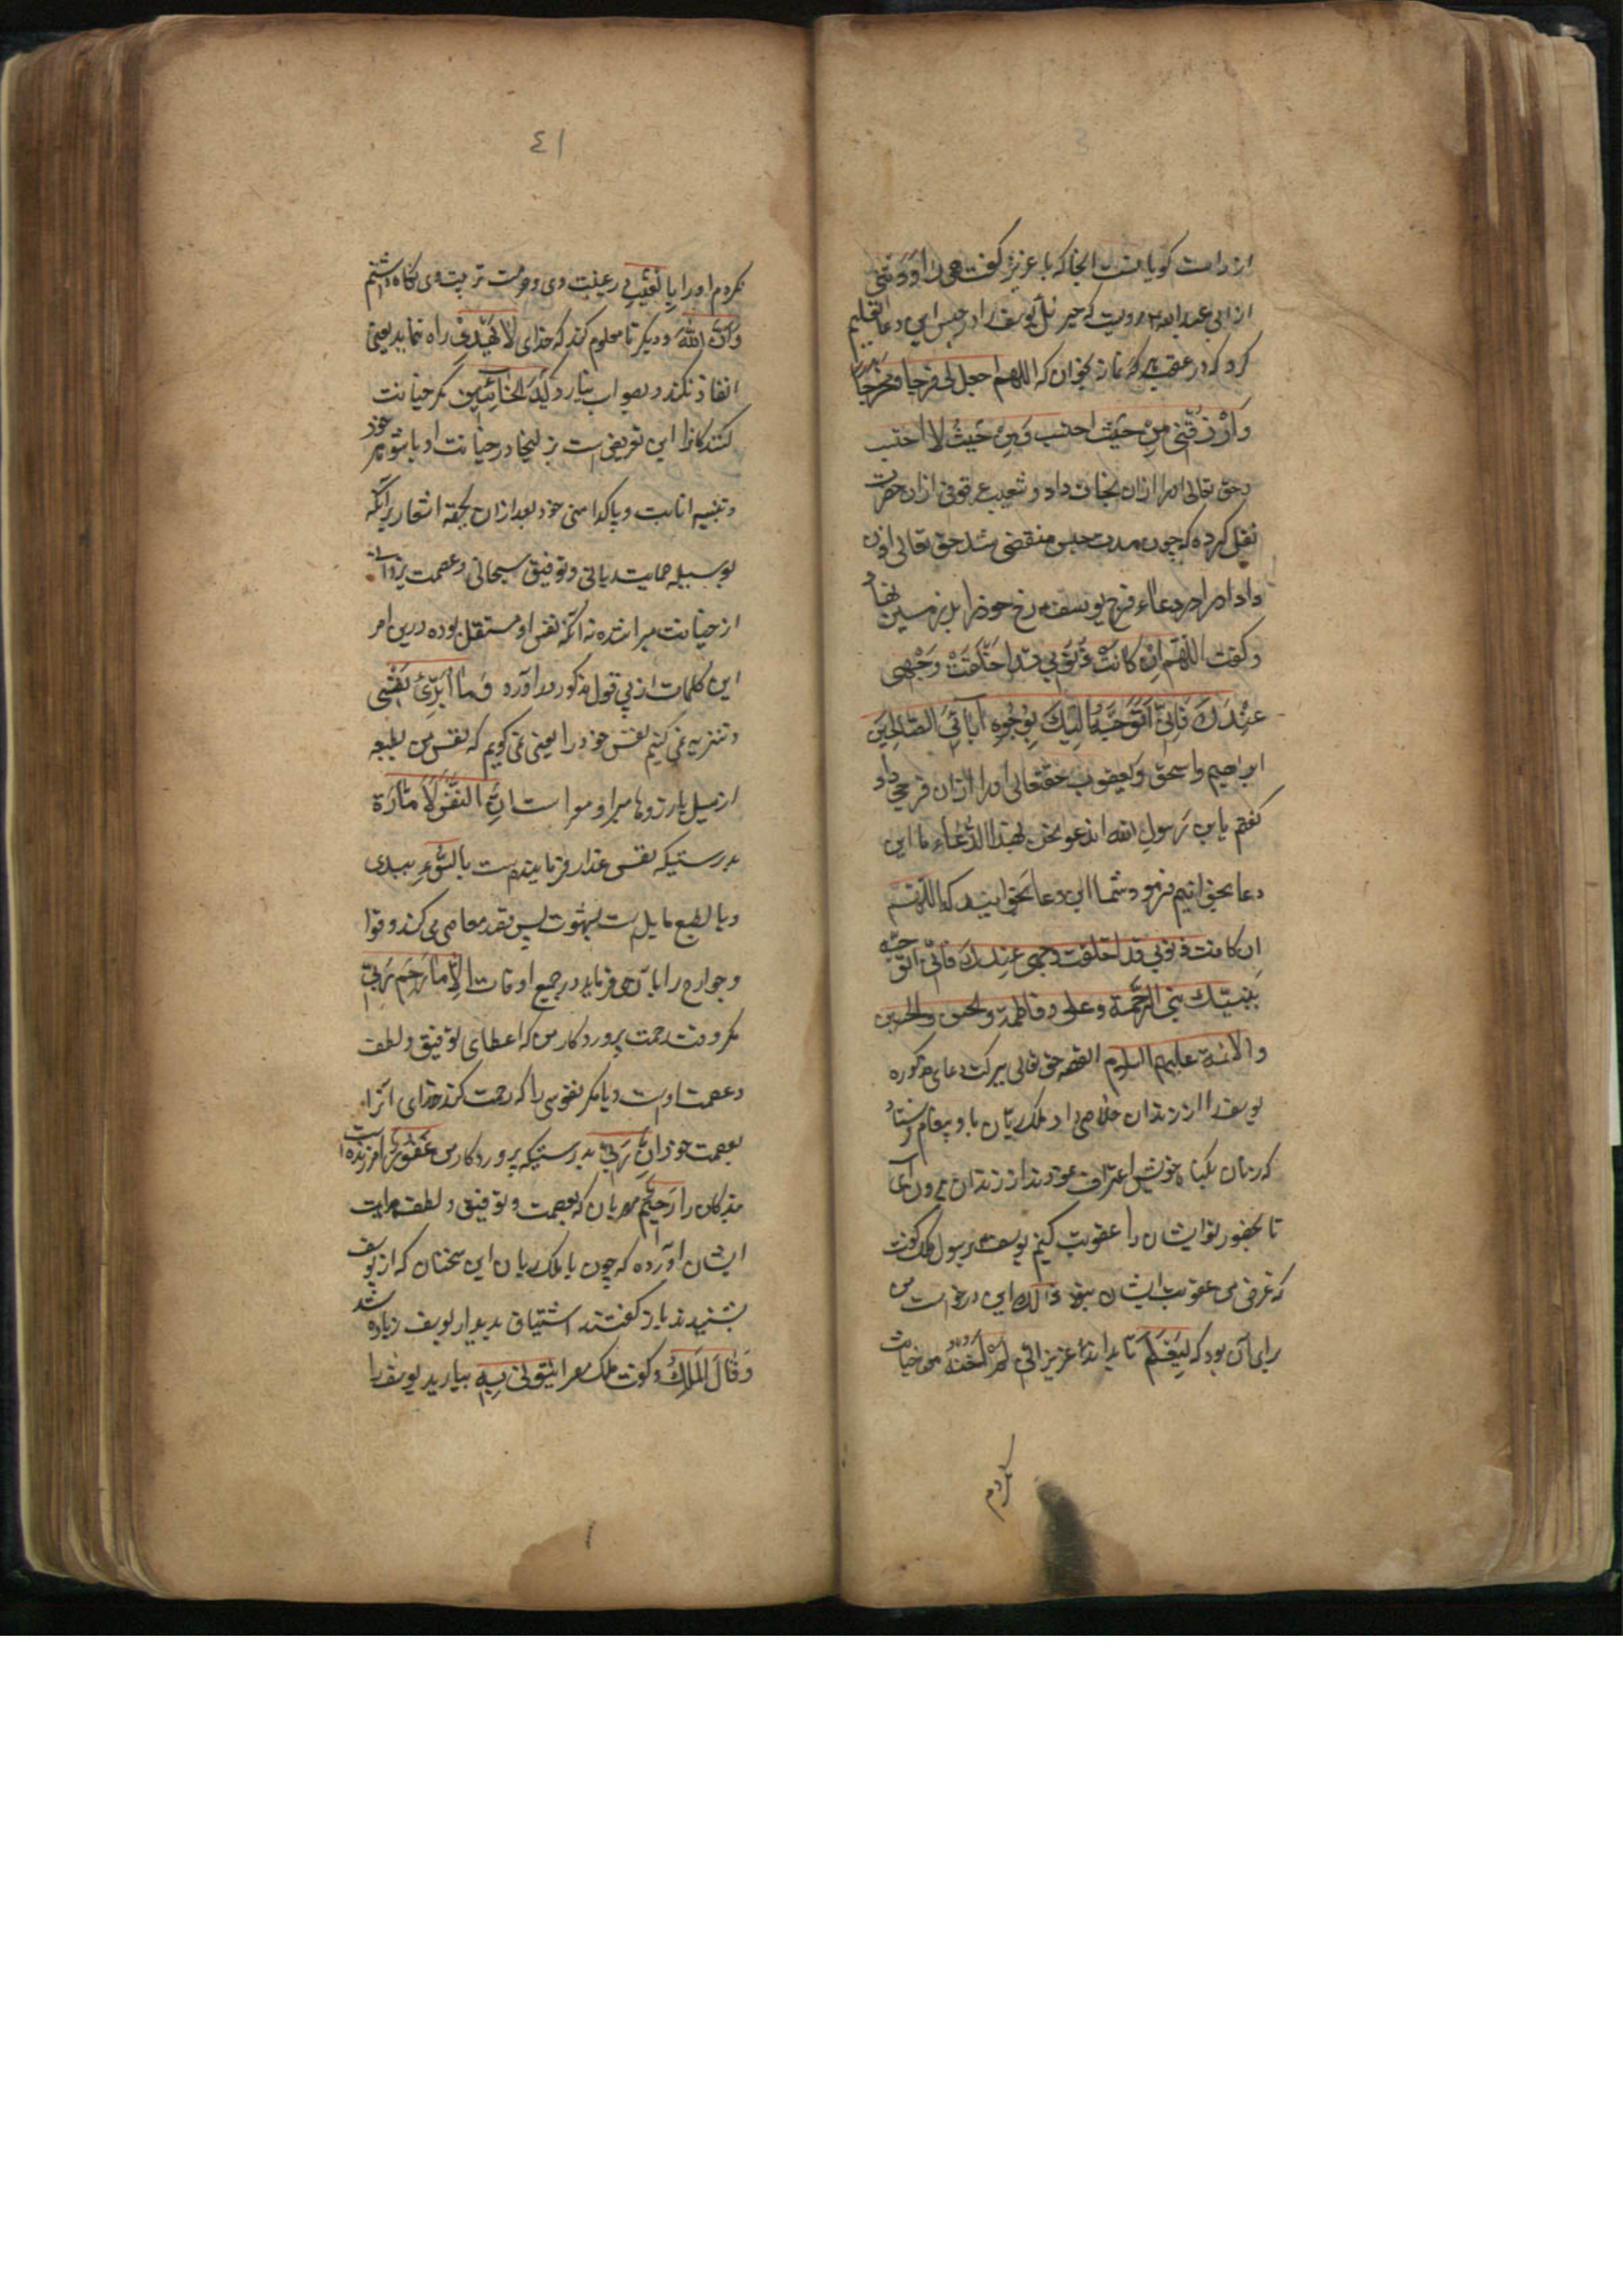 از راست گویانست انجا که با عزیز گفت هی راودتنی
از ابی عبد الله مرویست که جبرئیل یوسف را در حبس این دعا تعلیم
کرد که در عقب هر نماز بخوان که اللهم اجعل لی فرجا و مخرجا
وَارْزُقْنی مِنْ حَیْثُ احتسب وَمِنْ حَیْثُ لا احتسب
حق تعالی او را ازان نجات داد و شعیب عقرقوفی ازان حضرت
نقل کرده که چون مدت حبس منقضی شد حق تعالی اذن
داد او را در دعاء فرج یوسف رخ خود را بر زمین نهاد
و گفت اللهم اِنْ کانَتْ ذُنوبی قد اخلقَتْ وَجْهی
عِنْدَكَ فَاِنّی اَتَوَجَّهُ اِلَیْكَ بِوُجُوهِ آبائی الصّالِحینَ
ابراهیم واسحق و یعقوب حقتعالی او را ازان فرجی داد
گفتم یابن رَسولِ الله اندعو نحن بهذا الدُّعاء ما این
دعا بخوانیم فرمود شما این دعا بخوانید که اللّهم
اِن کانت ذنوبی قد اخلقت وجهی عندك فانّی اتوجّه
بنبیّك نبیّ الرّحمة وعلی وفاطمة والحسن والحسین
والائمة علیهم السلام القصه حق تعالی ببرکت دعای مذکوره
یوسف را از زندان خلاصی داد ملک ریّان باو پیغام فرستاد
که زنان بگناه خویش اعتراف نمودند از زندان بیرون آی
تا بحضور تو ایشان را عقوبت کنیم یوسف برسول ملک گفت
که غرض من عقوبت ایشان نبود ذالك این درخواست من
برای آن بود که لِیَعْلَمَ تا بداند عزیز انّی لَمْ اَخُنْهُ من خیانت
نکردم
٤١
نکردم او را بِالْغَیْبِ در غیبت وی و حرمت تربیت وی نگاه داشتم
وَاَنَّ اللهَ و دیگر تا معلوم کند که خدای لا یَهْدی راه ننماید یعنی
انفاذ نکند و بصواب نیارد کَیْدَ الْخائِنینَ مکر خیانت
کنندکانرا این تعریض است بزلیخا در خیانت او با شوهر خود
و تنبیه امانت و پاکدامنی خود بعد ازان بجهة اشعار برآنکه
بوسیله حمایت ربانی و توفیق سبحانی و عصمت یزدانی
از خیانت مبرا شده نه آنکه نفس او مستقل بوده درین امر
این کلمات از پی قول مذکور درآورد وَما اُبَرِّئُ نَفْسی
و تنزیه نمی کنیم نفس خود را یعنی نمی گویم که نفس من بطبعه
از میل بارزوها مبرا و معرا است اِنَّ النَّفْسَ لَاَمّارَةٌ
بدرستیکه نفس غدار فرماینده است بِالسُّوءِ ببدی
و بالطبع مایل است بشهوت پس قصد معاصی می کند و قوا
و جوارح را بان می فرماید در جمیع اوقات اِلّا ما رَحِمَ رَبّی
مگر وقت رحمت پروردکار من که اعطای توفیق و لطف
و عصمت اوست و یا مگر نفوسی را که رحمت کند خدای آنرا
بعصمت خود اِنَّ رَبّی بدرستیکه پروردکار من غَفُورٌ امرزنده است
بندکان را رَحیمٌ مهربان که بعصمت و توفیق و لطف هدایت
ایشان آورده که چون با ملک ریان این سخنان که از یوسف
بشنیدند باز گفتند اشتیاق بدیدار یوسف زیاده شد
وَقالَ الْمَلِكُ و گفت ملک مصر ایتُونی بِهِ بیارید یوسف را